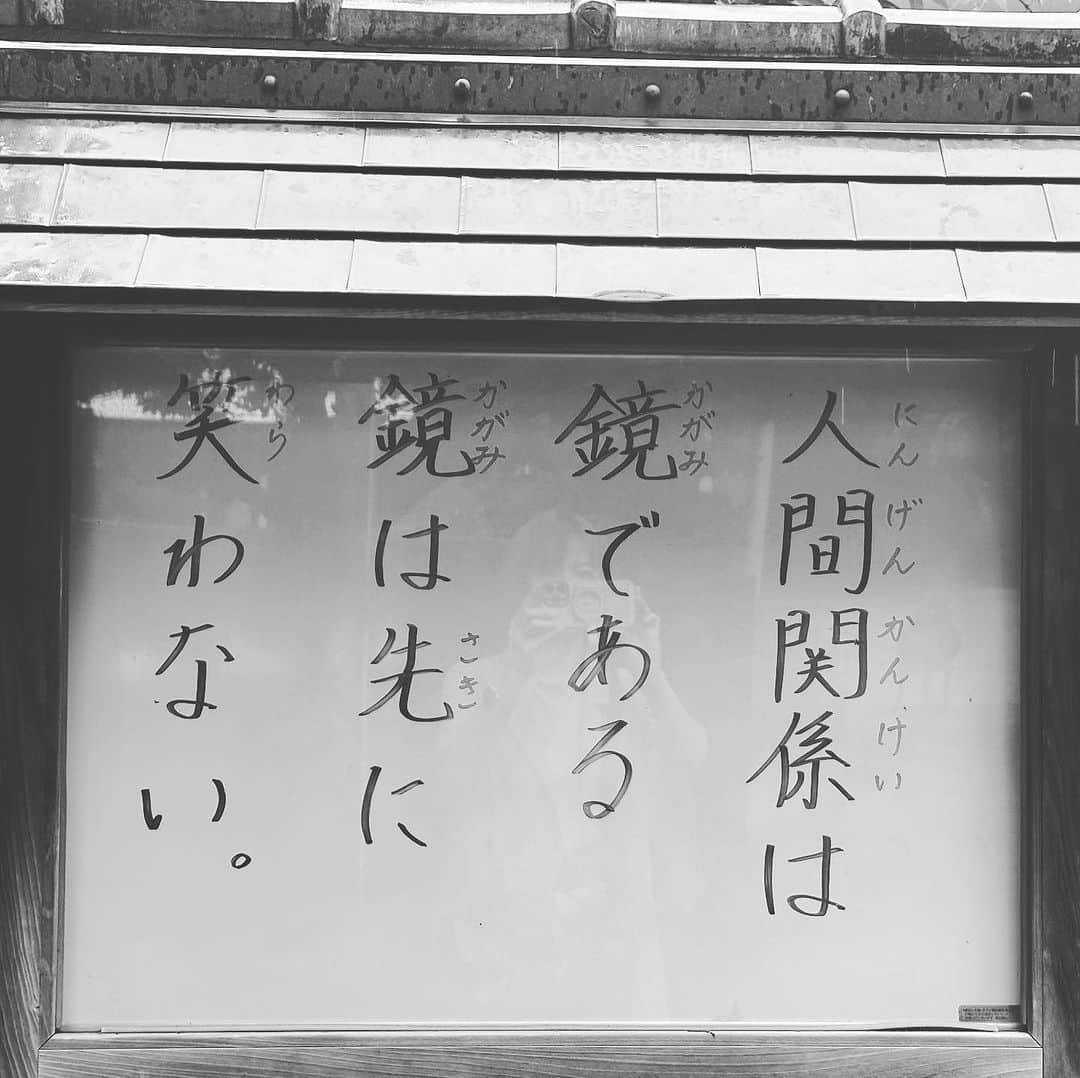 人間関係は
にんげんかんけい
鏡である
かがみ
鏡は先に
かがみ さき
笑わない。
わら